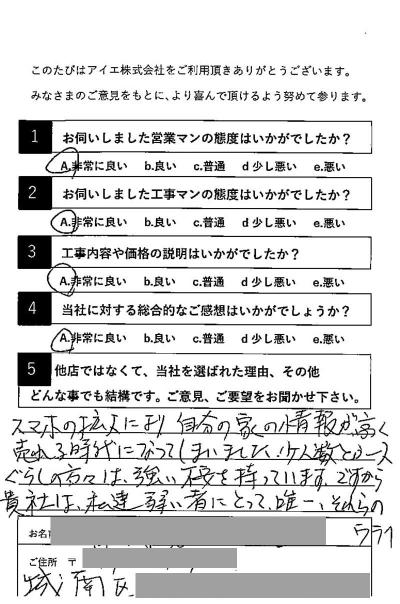 このたびはアイエ株式会社をご利用頂きありがとうございます。
みなさまのご意見をもとに、より喜んで頂けるよう努めて参ります。
1 お伺いしました営業マンの態度はいかがでしたか？
A.非常に良い b.良い c.普通 d 少し悪い e.悪い
2 お伺いしました工事マンの態度はいかがでしたか？
A.非常に良い b.良い c.普通 d 少し悪い e.悪い
3 工事内容や価格の説明はいかがでしたか？
A.非常に良い b.良い c.普通 d 少し悪い e.悪い
4 当社に対する総合的なご感想はいかがでしょうか？
A.非常に良い b.良い c.普通 d 少し悪い e.悪い
5 他店ではなくて、当社を選ばれた理由、その他
どんな事でも結構です。ご意見、ご要望をお聞かせ下さい。
スマホの拡大により 自分の家の情報が高く
売れる時代になってしまいました。少人数と
ぐらしの方々は、強い 不安を持っています。ですから
貴社は、私達 弱い者にとって、唯一、それらの
お名前
ご住所 〒
城南区